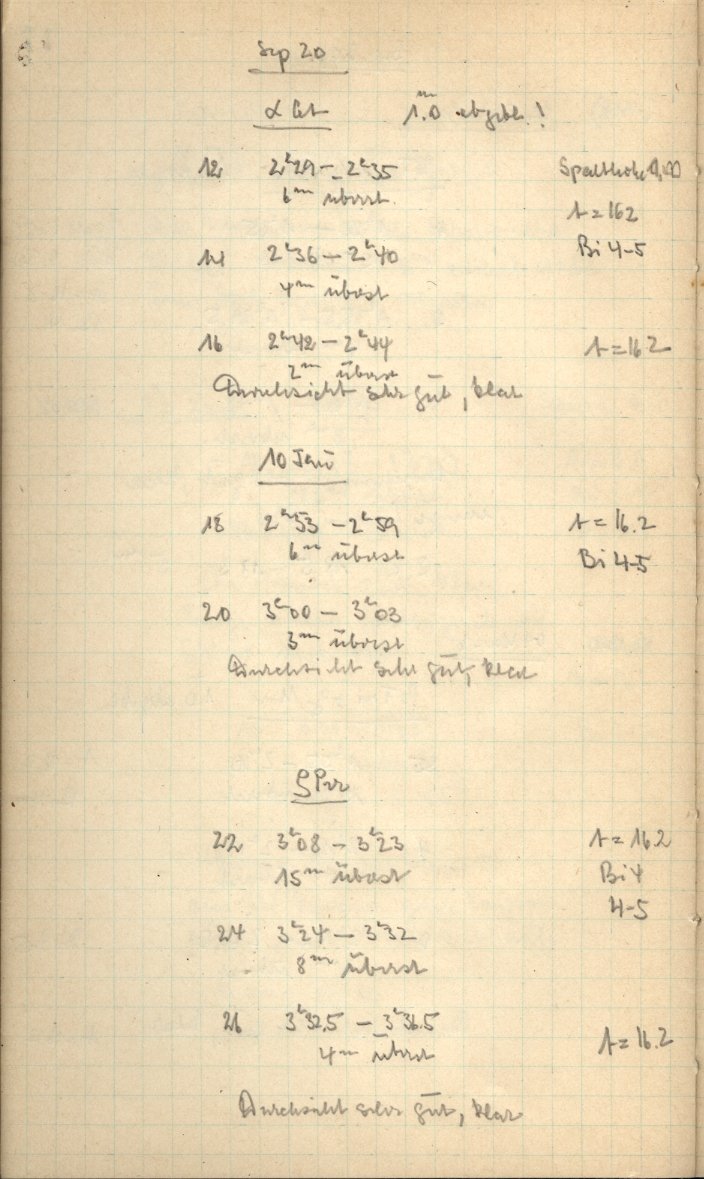 Sep 20
α Cet 1.0ᵐ abgebl.!
12 2ʰ29 – 2ʰ35 Spalthöhe
6ᵐ überst. t = 16.2
14 2ʰ36 – 2ʰ40 Bi 4-5
4ᵐ überst
16 2ʰ42 – 2ʰ44 t = 16.2
2ᵐ überst
Durchsicht sehr gut, klar
10 Tau
18 2ʰ53 – 2ʰ59 t = 16.2
6ᵐ überst Bi 4-5
20 3ʰ00 – 3ʰ03
3ᵐ überst
Durchsicht sehr gut, klar
Per
22 3ʰ08 – 3ʰ23 t = 16.2
15ᵐ überst Bi 4
4-5
24 3ʰ24 – 3ʰ32
8ᵐ überst
26 3ʰ32.5 – 3ʰ36.5
4ᵐ überst t = 16.2
Durchsicht sehr gut, klar